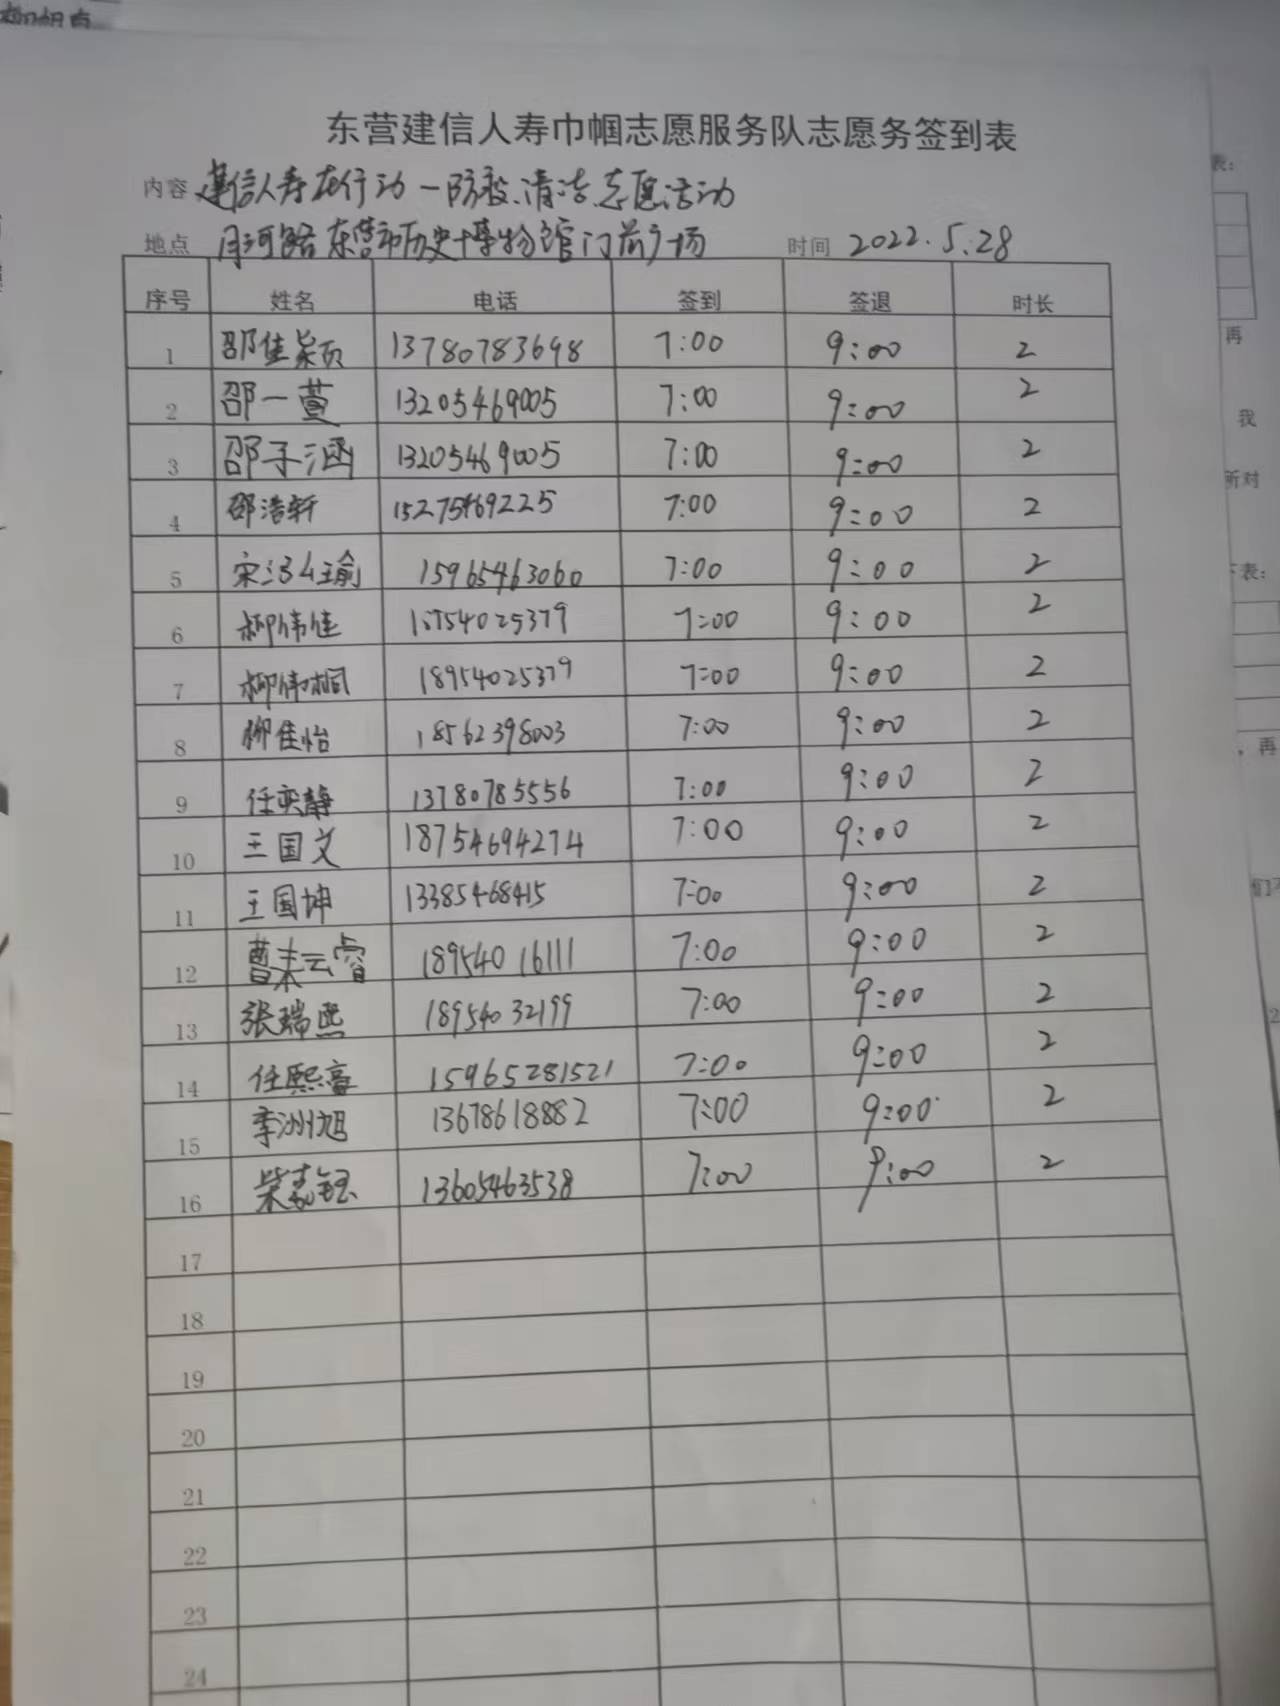 东营建信人寿巾帼志愿服务队志愿务签到表
内容 建信人寿在行动一防疫、清洁、志愿活动
地点 月河路东营市历史博物馆门前广场 时间 2022.5.28
序号 姓名 电话 签到 签退 时长
1 邵佳颖 13780783698 7:00 9:00 2
2 邵一萱 13205469005 7:00 9:00 2
3 邵子涵 13205469005 7:00 9:00 2
4 邵浩轩 15275469225 7:00 9:00 2
5 宋 瑜 15965463060 7:00 9:00 2
6 柳伟佳 7:00 9:00 2
7 柳伟桐 18954025379 7:00 9:00 2
8 柳佳怡 18562398003 7:00 9:00 2
9 任奕静 13780785556 7:00 9:00 2
10 王国文 18754694274 7:00 9:00 2
11 王国坤 13385468415 7:00 9:00 2
12 曹未云睿 18954016111 7:00 9:00 2
13 张瑞熙 18954032199 7:00 9:00 2
14 任熙 15965281521 7:00 9:00 2
15 李洲旭 13678618882 7:00 9:00 2
16 柴嘉钰 13605463538 7:00 9:00 2
17
18
19
20
21
22
23
24
表：
再
我
所对
下表：
，再
们
2